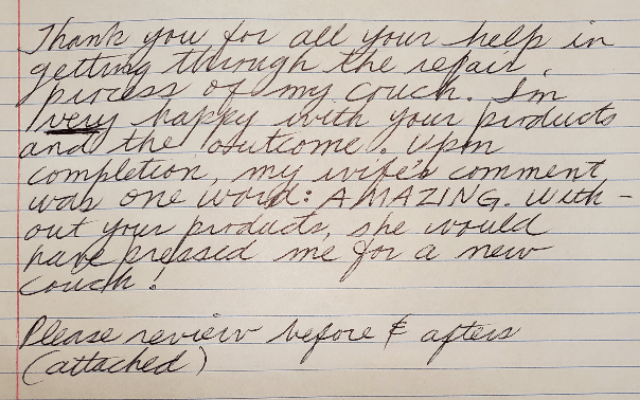 Thank you for all your help in
getting through the repair
process of my couch. I'm
very happy with your products
and the outcome. Upon
completion, my wife's comment
was one word: AMAZING. With-
out your products, she would
have pressed me for a new
couch!
Please review before & afters
(attached)